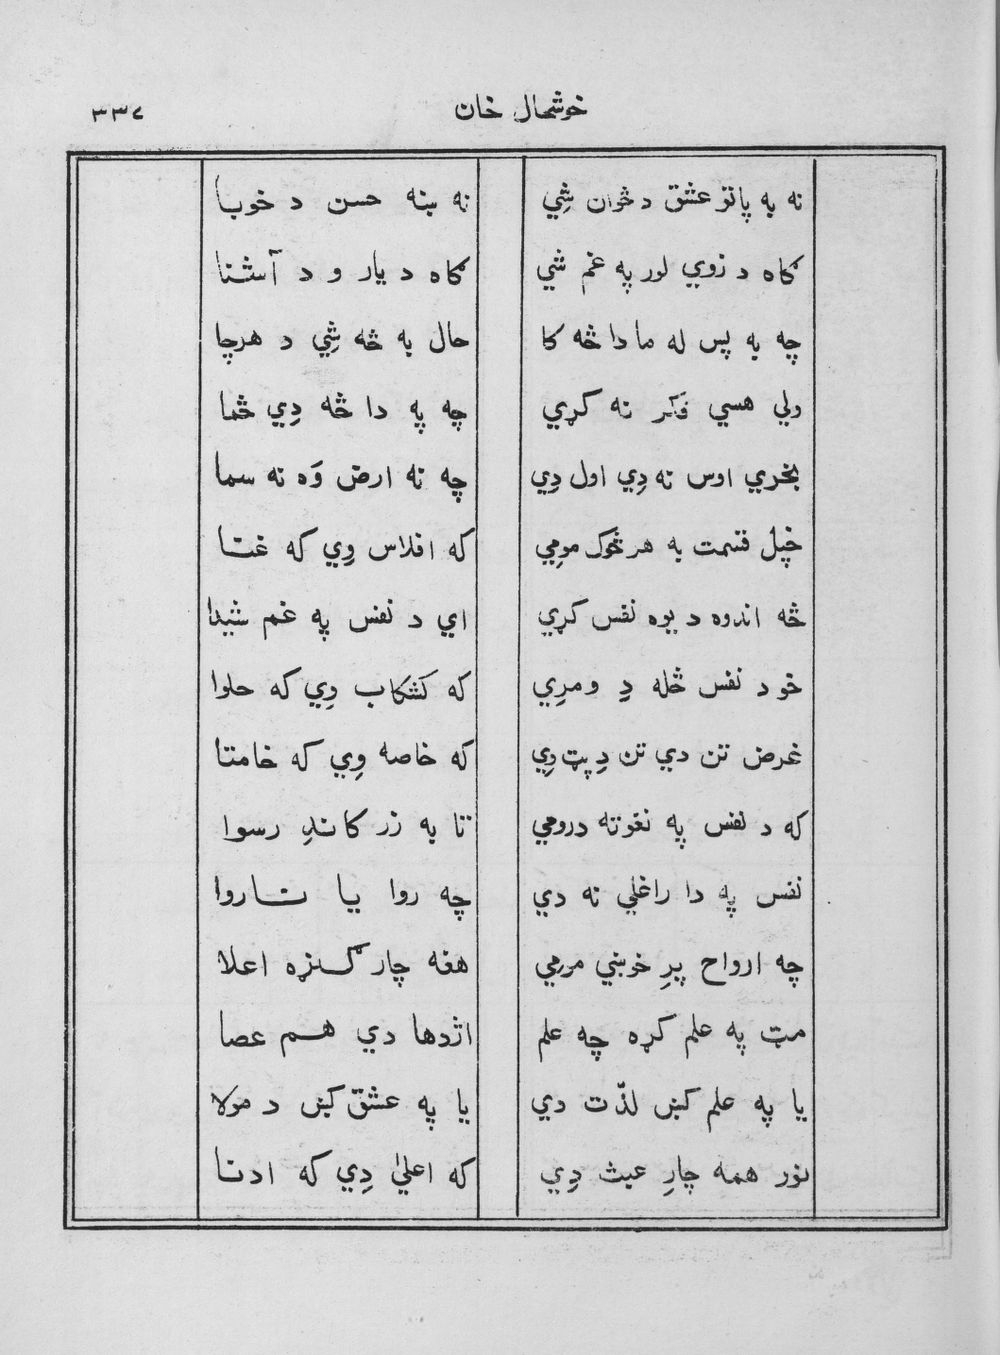 خوشحال خان ۳۳۷
نه به پاتو عشق د څوان شِي نه ښه حسن د خوبا
کاه د زوي لور په غم شي کاه د يار و د آشنا
چه به پس له ما دا څه کا حال به څه شِي د هرچا
ولي هسي فکر نه کړي چه په دا څه دِي څما
بخري اوس نه دِي اول دِي چه نه ارض وَه نه سما
خپل قسمت به هر څوک مومِي که افلاس وِي که غنا
څه اندوه د يوه نفس کړي اي د نفس په غم شيدا
خو د نفس څله دِ ومرِي که کشکاب وِي که حلوا
غرض تن دي تن دِ پټ وِي که خاصه وِي که خامتا
که د نفس په نغوته درومي تا به زر کاندِ رسوا
نفس په دا راغلي نه دي چه روا يا ناروا
چه ارواح پرِ خوښي مومي هغه چار ګڼړه اعلا
مټ په علم کړه چه علم اژدها دي هم عصا
يا په علم کښ لذّت دي يا په عشق کښ د مولا
نور همه چارِ عبث دِي که اعلیٰ دِي که ادنا